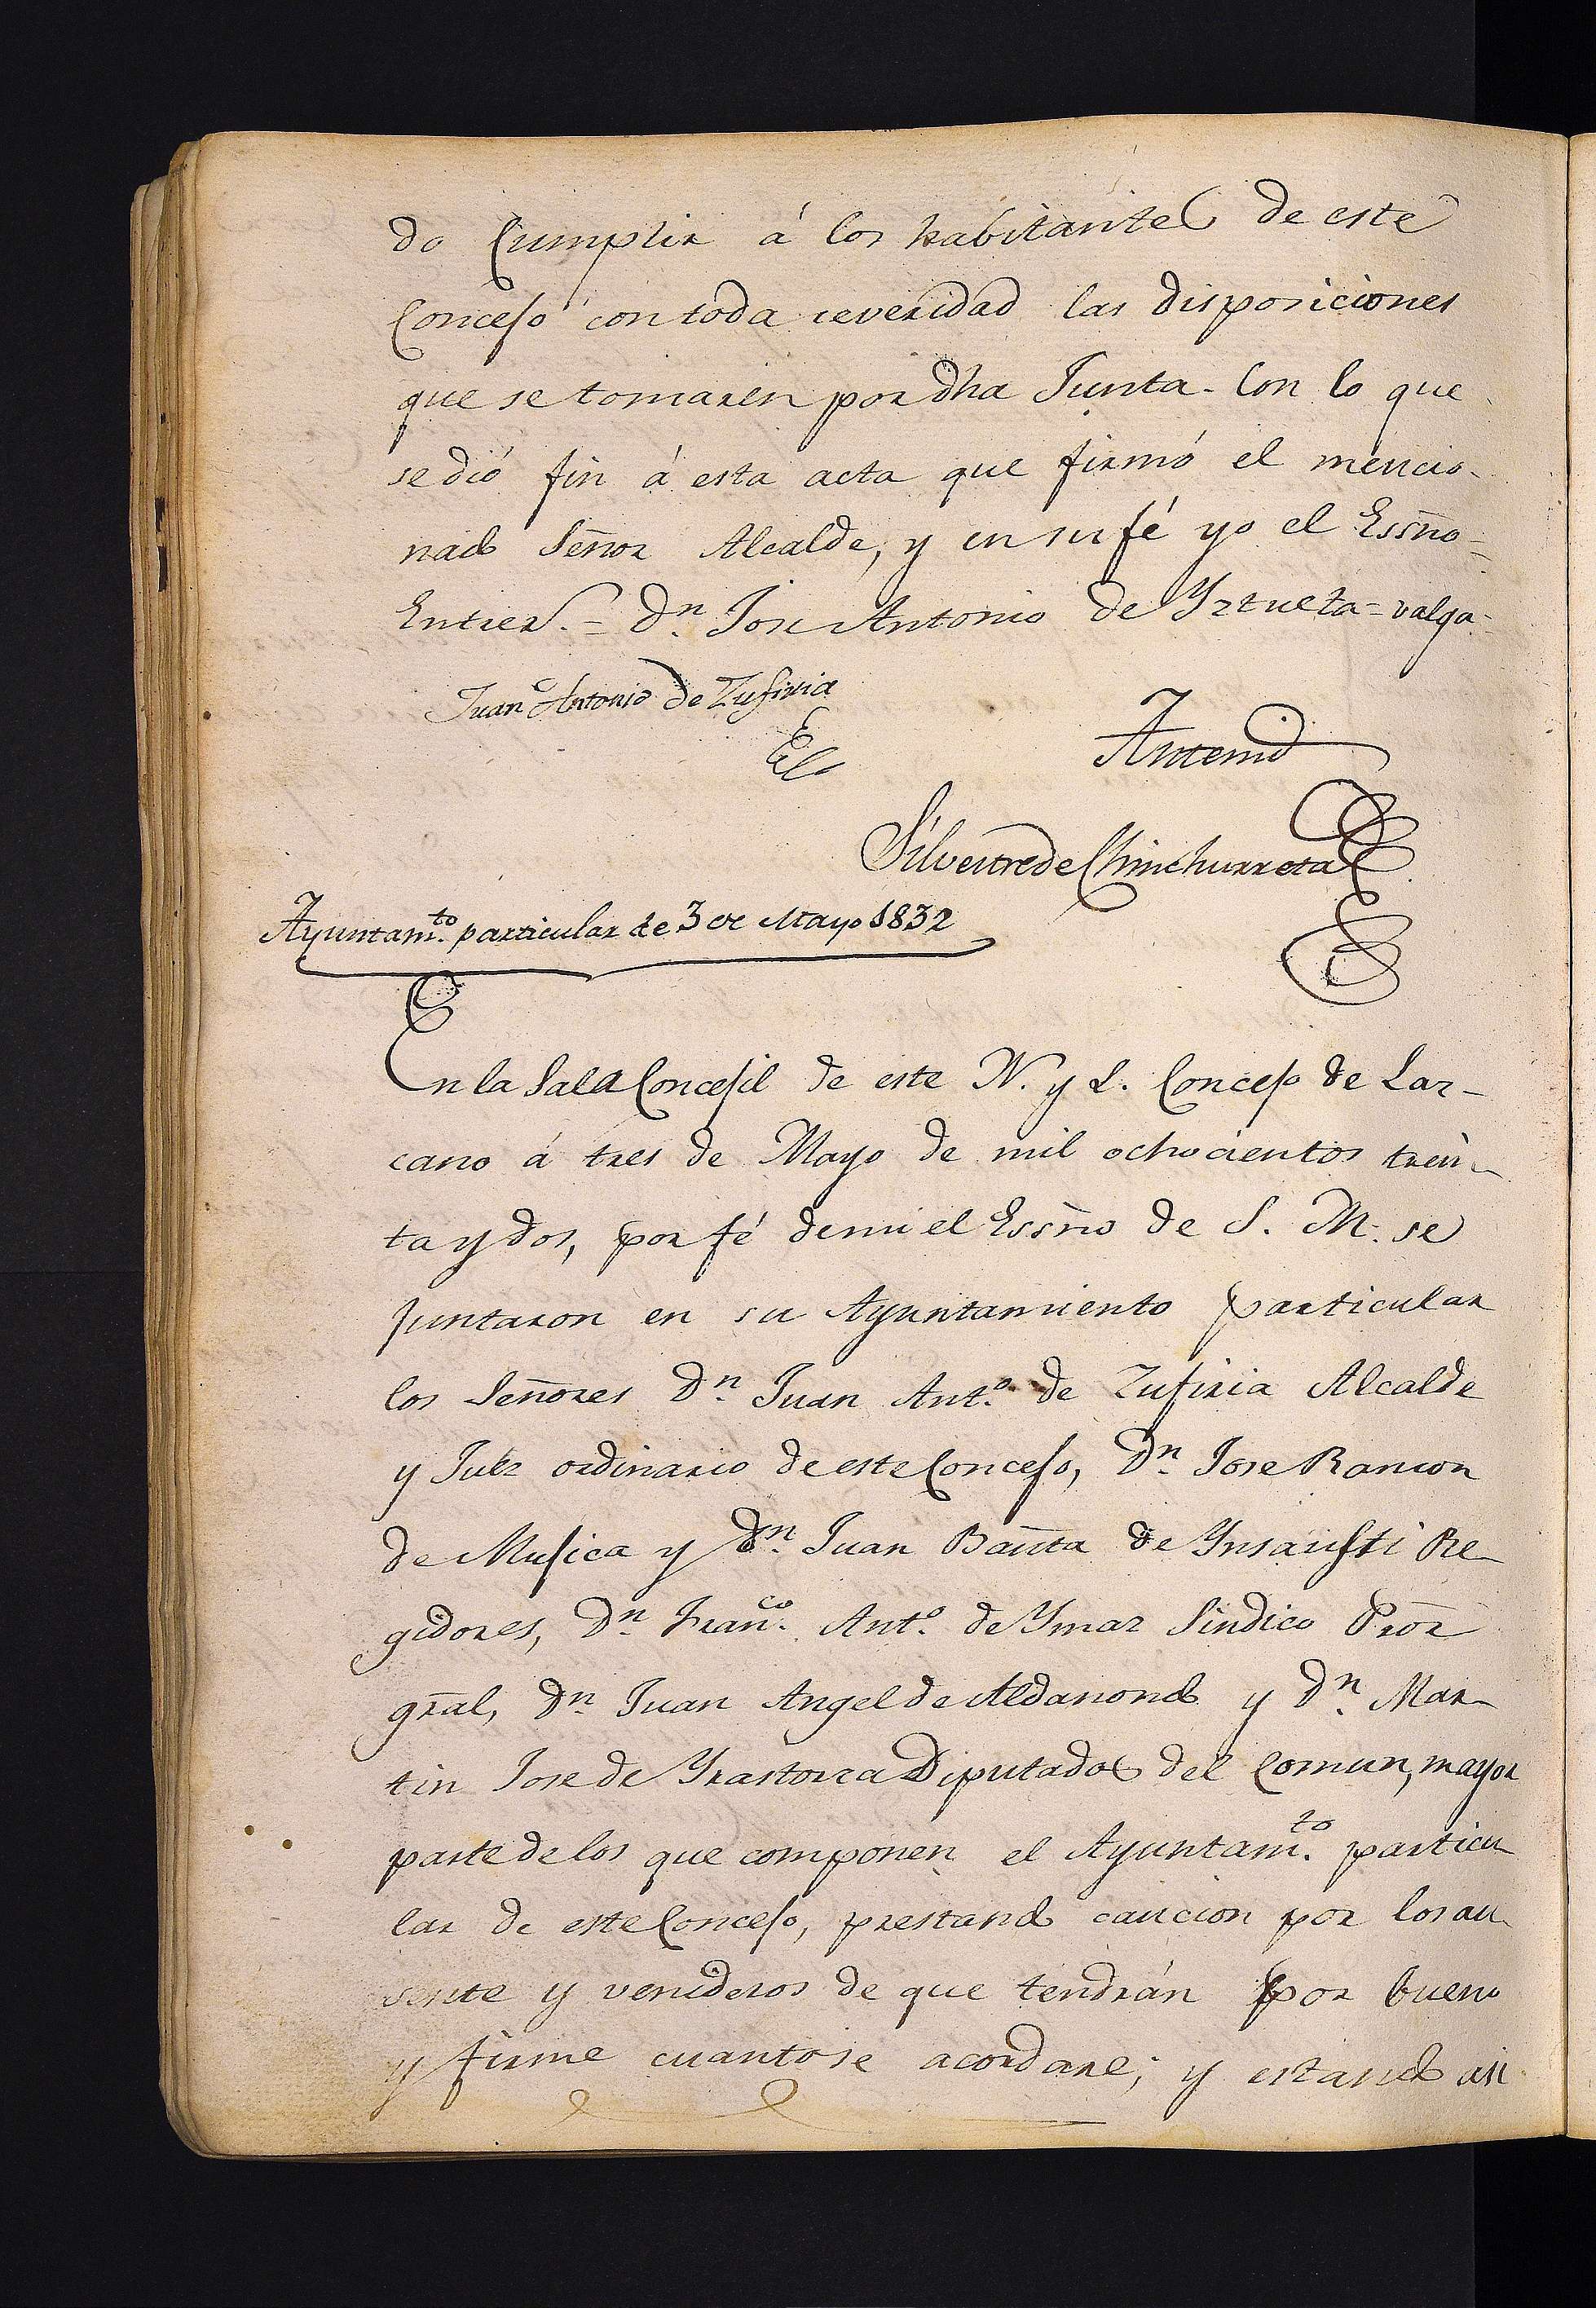 do cumplir á los habitantes de este
Concejo con toda ceveridad las disposiciones
que se tomaren por dha Junta. Con lo que
se dió fin á esta acta que firmó el mencio-
nado Señor Alcalde, y en su fé yo el Essno=
Entrer.= Dn. Jose Antonio de Yztueta= valga=
Juan Antonio de Zufiria
Antemi
Silvestre de Chinchurreta
Ayuntamto. particular de 3 de Mayo 1832
En la Sala Concejil de este N. y L. Concejo de Laz-
cano á tres de Mayo de mil ochocientos trein-
ta y dos, por fé de mi el Essno de S. M. se
juntaron en su Ayuntamiento particular
los Señores Dn. Juan Anto. de Zufiria Alcalde
y Juez ordinario de este Concejo, Dn. Jose Ramon
de Mujica y Dn. Juan Bauta de Ynsausti Re-
gidores, Dn. Franco. Anto. de Ymaz Sindico Pror
gral, Dn. Juan Angel de Aldanondo y Dn. Mar-
tin Jose de Yrastorza Diputados del Comun, mayor
parte de los que componen el Ayuntamto. particu-
lar de este Concejo, prestando caución por los au-
sente y venideros de que tendrán por bueno
y firme cuanto se acordare; y estando asi